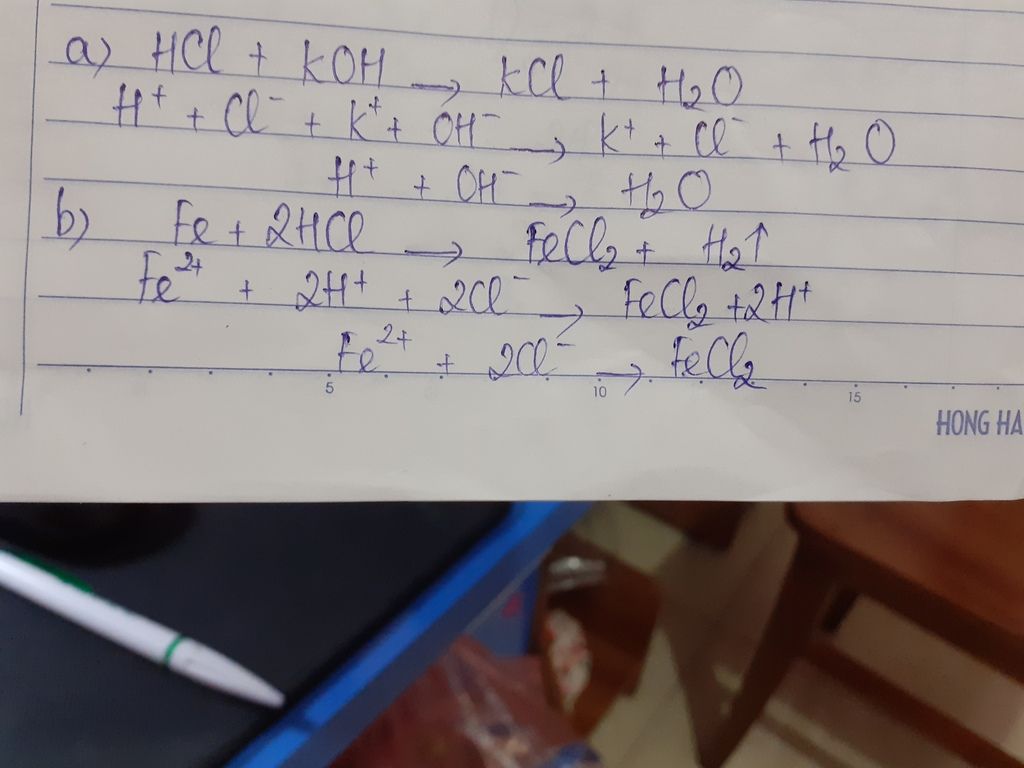 a) HCl + KOH → KCl + H₂O
H⁺ + Cl⁻ + K⁺ + OH⁻ → K⁺ + Cl⁻ + H₂O
H⁺ + OH⁻ → H₂O
b) Fe + 2HCl → FeCl₂ + H₂↑
Fe²⁺ + 2H⁺ + 2Cl⁻ → FeCl₂ + 2H⁺
Fe²⁺ + 2Cl⁻ → FeCl₂
5 10 15
HONG HA